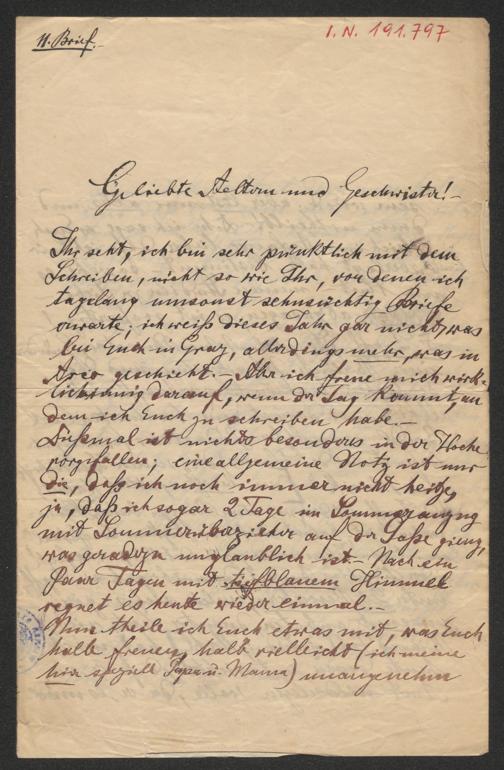 11. Brief.
I. N. 191.797
Geliebte Aeltern und Geschwister! –
Ihr seht, ich bin sehr pünktlich mit dem
Schreiben, nicht so wie Ihr, von denen ich
tagelang umsonst sehnsüchtig Briefe
erwarte; ich weiß dieses Jahr gar nichts, was
bei Euch in Graz, allerdings mehr, was in
Arco geschieht. – Aber ich freue mich wirk-
lich innig darauf, wenn der Tag kommt, an
dem ich Euch zu schreiben habe. –
Dießmal ist nichts besonderes in der Woche
vorgefallen; eine allgemeine Notiz ist nur
die, daß ich noch immer nicht heitze,
ja, daß ich sogar 2 Tage im Sommeranzug
mit Sommerüberzieher auf der Gaße gieng,
was geradezu unglaublich ist. – Nach ein
Paar Tagen mit tiefblauem Himmel
regnet es heute wieder einmal. –
Nun theile ich Euch etwas mit, was Euch
halb freuen, halb vielleicht (ich meine
hier speziell Papa u. Mama) unangenehm